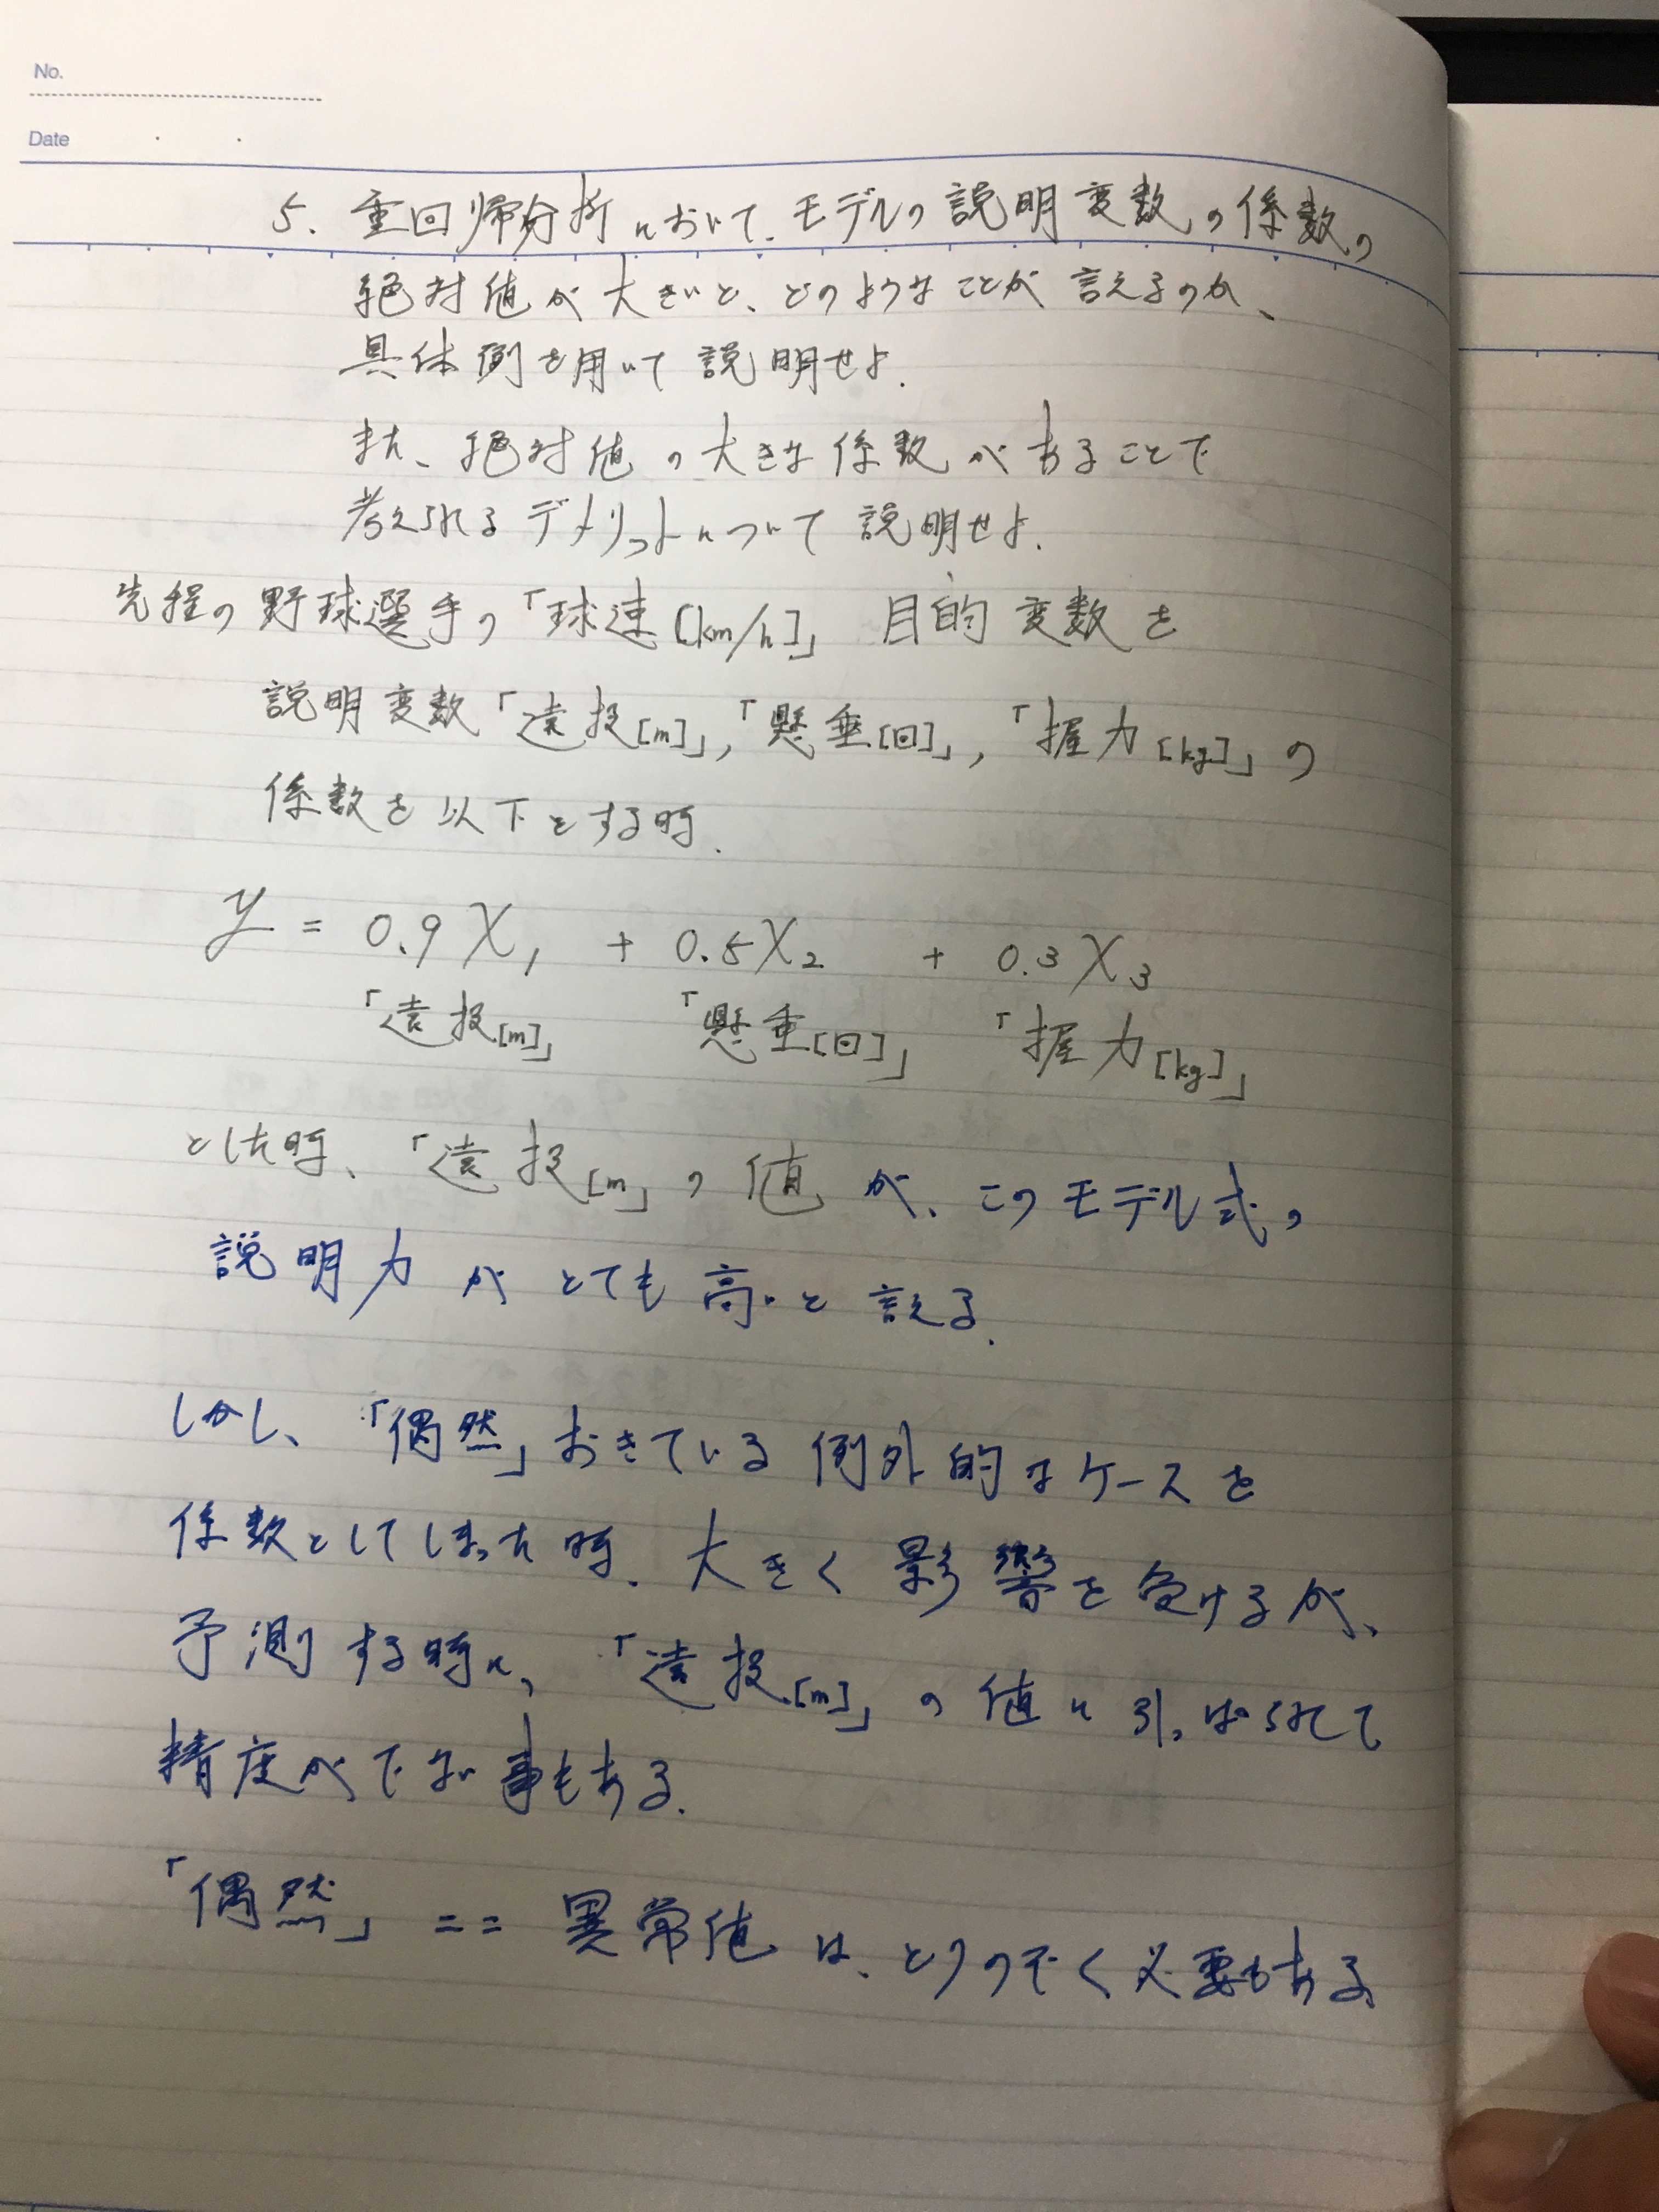 No.
Date
5. 重回帰分析において、モデルの説明変数の係数の
絶対値が大きいと、どのようなことが言えるのか、
具体例を用いて説明せよ.
また、絶対値の大きな係数があることで
考えられるデメリットについて説明せよ.
先程の野球選手の「球速[km/h]」目的変数を
説明変数「遠投[m]」,「懸垂[回]」,「握力[kg]」の
係数を以下とする時.
y = 0.9X₁ + 0.5X₂ + 0.3X₃
「遠投[m]」 「懸垂[回]」 「握力[kg]」
とした時、「遠投[m]」の値が、このモデル式の
説明力がとても高いと言える.
しかし、「偶然」おきている例外的なケースを
係数としてしまった時.大きく影響を受けるが、
予測する時に、「遠投[m]」の値に引っぱられて
精度がでない事もある.
「偶然」== 異常値は、とりのぞく必要もある.